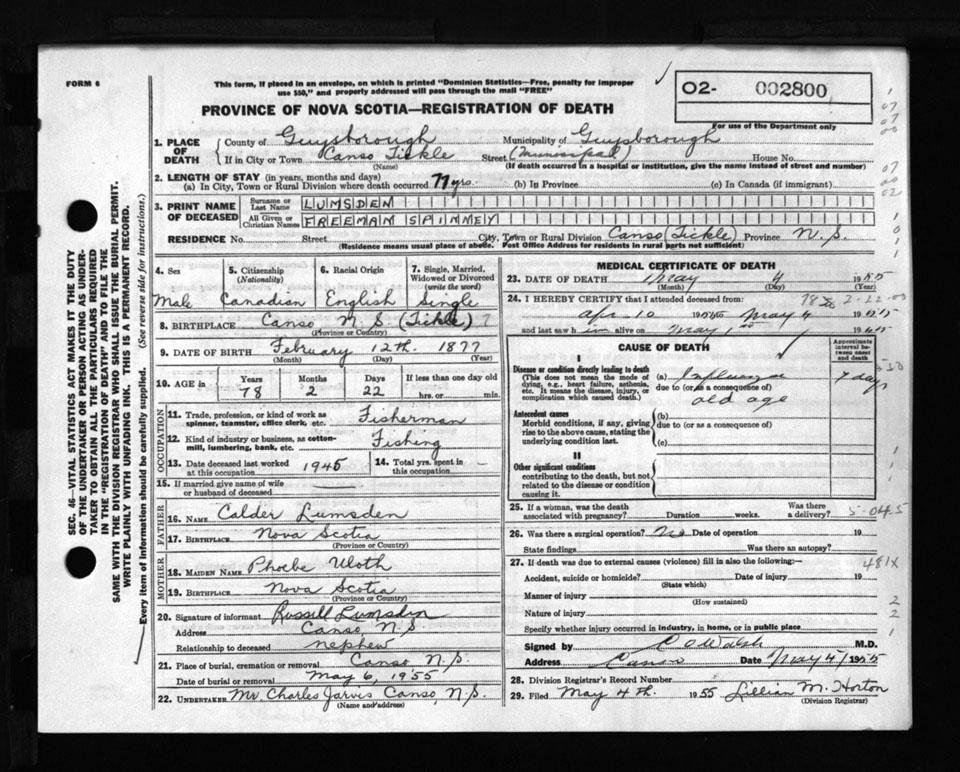 FORM 6
This form, if placed in an envelope, on which is printed "Dominion Statistics—Free, penalty for improper
use $50," and properly addressed will pass through the mail "FREE"
O2- 002800
For use of the Department only
PROVINCE OF NOVA SCOTIA—REGISTRATION OF DEATH
1. PLACE OF DEATH
County of Guysborough Municipality of Guysborough
If in City or Town Canso Tickle Street (Municipal) House No.
(Name) (If death occurred in a hospital or institution, give the name instead of street and number)
2. LENGTH OF STAY (in years, months and days)
(a) In City, Town or Rural Division where death occurred 77 yrs. (b) In Province (c) In Canada (if immigrant)
3. PRINT NAME OF DECEASED
Surname or Last Name LUMSDEN
All Given or Christian Names FREEMAN SPINNEY
RESIDENCE No. Street City, Town or Rural Division Canso (Tickle) Province N.S.
(Residence means usual place of abode. Post Office Address for residents in rural parts not sufficient)
4. Sex 5. Citizenship (Nationality) 6. Racial Origin 7. Single, Married, Widowed or Divorced (write the word)
Male Canadian English Single
8. BIRTHPLACE Canso N.S (Tickle)
(Province or Country)
9. DATE OF BIRTH February 12th. 1877
(Month) (Day) (Year)
10. AGE in Years Months Days If less than one day old
78 2 22 hrs. or min.
OCCUPATION
11. Trade, profession, or kind of work as spinner, teamster, office clerk, etc. Fisherman
12. Kind of industry or business, as cotton-mill, lumbering, bank, etc. Fishing
13. Date deceased last worked at this occupation 1945 14. Total yrs. spent in this occupation —
15. If married give name of wife or husband of deceased —
FATHER
16. NAME Calder Lumsden
17. BIRTHPLACE Nova Scotia
(Province or Country)
MOTHER
18. MAIDEN NAME Phoebe Uloth
19. BIRTHPLACE Nova Scotia
(Province or Country)
20. Signature of informant Russell Lumsden
Address Canso, N.S.
Relationship to deceased nephew
21. Place of burial, cremation or removal Canso, N.S.
Date of burial or removal May 6, 1955
22. UNDERTAKER Mr. Charles Jarvis Canso, N.S.
(Name and address)
MEDICAL CERTIFICATE OF DEATH
23. DATE OF DEATH May 4 1955
(Month) (Day)
24. I HEREBY CERTIFY that I attended deceased from:
Apr 10 1955 to May 4 1955
and last saw him alive on May 1st 1955
CAUSE OF DEATH
Approximate interval between onset and death
I
Disease or condition directly leading to death
(This does not mean the mode of dying, e.g., heart failure, asthenia, etc. It means the disease, injury, or complication which caused death.)
(a) Influenza 7 days
due to (or as a consequence of)
old age
Antecedent causes
Morbid conditions, if any, giving rise to the above cause, stating the underlying condition last.
(b)
due to (or as a consequence of)
(c)
II
Other significant conditions
contributing to the death, but not related to the disease or condition causing it.
25. If a woman, was the death associated with pregnancy? Duration weeks. Was there a delivery?
26. Was there a surgical operation? No Date of operation 19
State findings Was there an autopsy?
27. If death was due to external causes (violence) fill in also the following:—
Accident, suicide or homicide? Date of injury 19
(State which)
Manner of injury
(How sustained)
Nature of injury
Specify whether injury occurred in industry, in home, or in public place
Signed by C O Walsh M.D.
Address Canso Date May 4/1955
28. Division Registrar's Record Number
29. Filed May 4th. 1955 Lillian M. Horton
(Division Registrar)
481X
SEC. 46—VITAL STATISTICS ACT MAKES IT THE DUTY
OF THE UNDERTAKER OR PERSON ACTING AS UNDER-
TAKER TO OBTAIN ALL THE PARTICULARS REQUIRED
IN THE "REGISTRATION OF DEATH" AND TO FILE THE
SAME WITH THE DIVISION REGISTRAR WHO SHALL ISSUE THE BURIAL PERMIT.
WRITE PLAINLY WITH UNFADING INK. THIS IS A PERMANENT RECORD.
Every item of information should be carefully supplied. (See reverse side for instructions.)